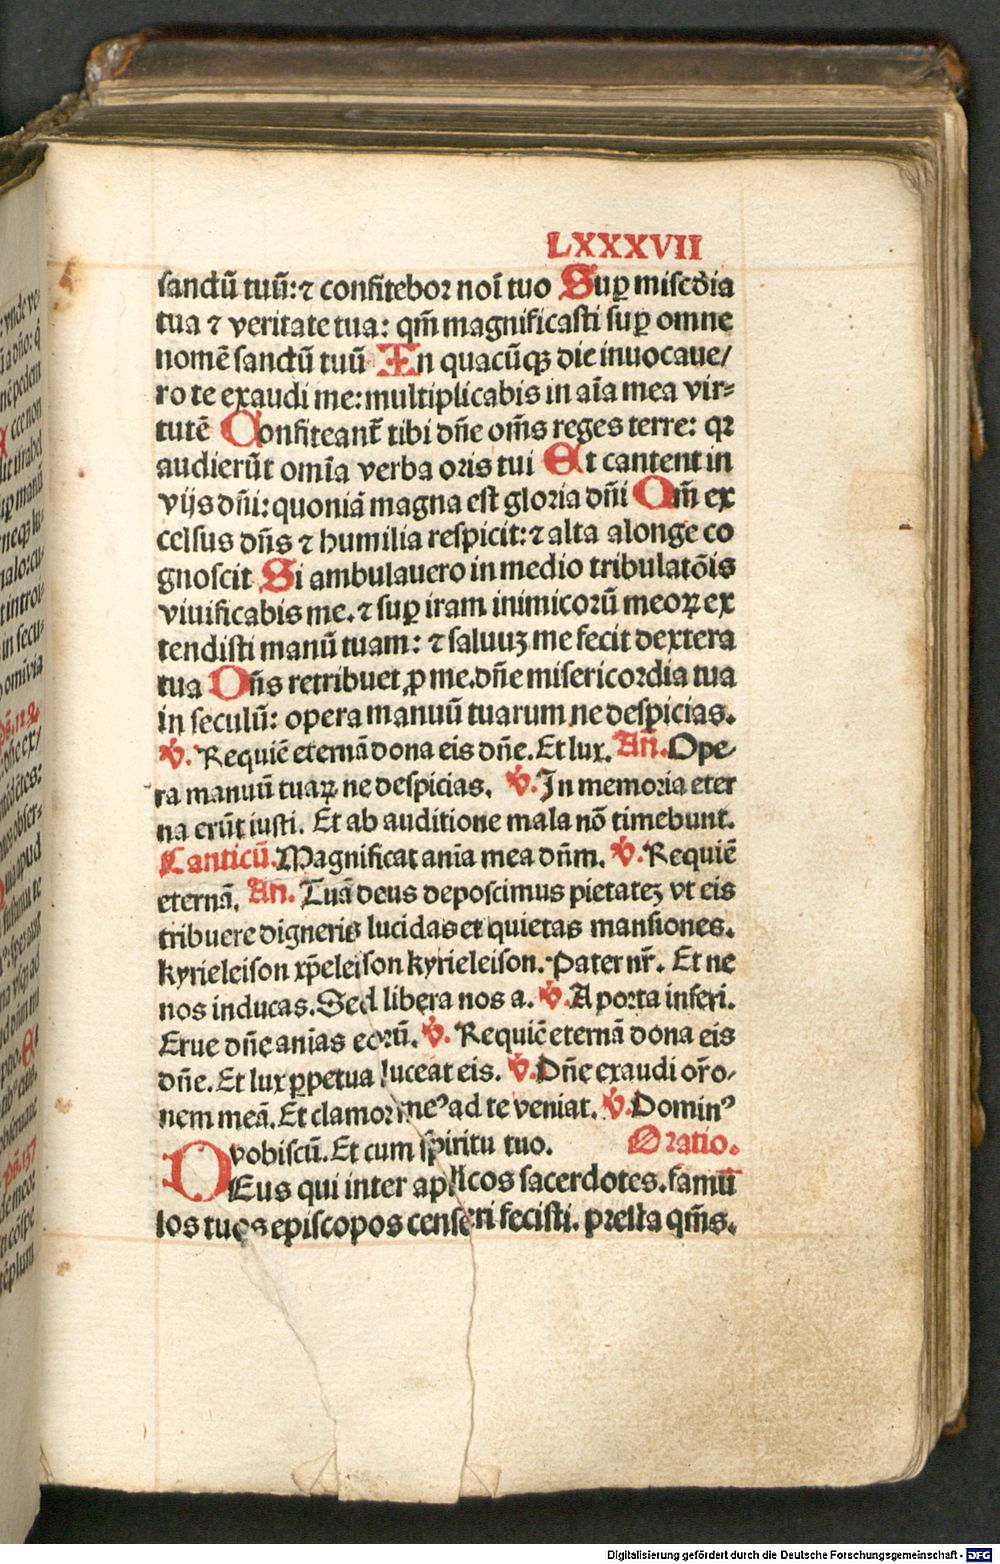 LXXXVII
sanctū tuū: ⁊ confitebor noī tuo Suꝑ misc̄dia
tua ⁊ veritate tua: qm̄ magnificasti suꝑ omne
nomē sanctū tuū In quacūqꝫ die inuocaue/
ro te exaudi me: multiplicabis in aīa mea vir⸗
tutē Confiteant᷑ tibi dn̄e om̄s reges terre: qꝛ
audierūt omīa verba oris tui Et cantent in
vijs dn̄i: quoniā magna est gloria dn̄i Qm̄ ex
celsus dn̄s ⁊ humilia respicit: ⁊ alta alonge co
gnoscit Si ambulauero in medio tribulatōis
viuificabis me. ⁊ suꝑ iram inimicorū meoꝝ ex
tendisti manū tuam: ⁊ saluuꝫ me fecit dextera
tua Dn̄s retribuet ꝓ me. dn̄e misericordia tua
in seculū: opera manuū tuarum ne despicias.
℣. Requiē eternā dona eis dn̄e. Et lux. Añ. Ope⸗
ra manuū tuaꝝ ne despicias. ℣. In memoria eter
na erūt iusti. Et ab auditione mala nō timebunt.
Canticū. Magnificat anīa mea dn̄m. ℣. Requiē
eternā. Añ. Tuā deus deposcimus pietateꝫ vt eis
tribuere digneris lucidas et quietas mansiones.
kyrieleison xp̄eleison kyrieleison. Pater nr̄. Et ne
nos inducas. Sed libera nos a. ℣. A porta inferi.
Erue dn̄e animas eorū. ℣. Requiē eternā dona eis
dn̄e. Et lux ꝑpetua luceat eis. ℣. Dn̄e exaudi or̄o⸗
nem meā. Et clamor meꝰ ad te veniat. ℣. Dominꝰ
vobiscū. Et cum spiritu tuo. Oratio.
DEus qui inter apl̄icos sacerdotes. famu̅
los tuos episcopos censeri fecisti. presta qm̄s.
Digitalisierung gefördert durch die Deutsche Forschungsgemeinschaft - DFG